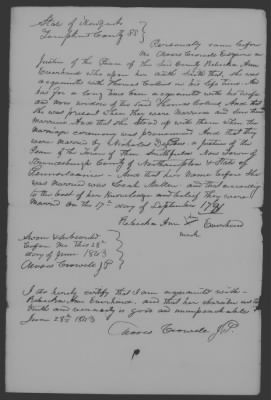 State of New York
Tompkins County SS
Personally came before
me Amos Crowell Esquire a
Justice of the Peace of the said County Rebecka Ann
Evenhend who upon her oath saith that, she was
acquainted with Thomas in his life time. And
has for a long time been acquainted with his wife
and now widow of the said Thomas And that
she was present when they were married and saw them
Married And that she stood up with them when the
Marriage ceremony was pronounced And that they
were Married by Nicholas Depew a Justice of the
Peace of the Town of then Smithfield Now Town of
County of Northampton & State of
Pennsylvania - And that her Name before she
was Married was Leah And that according
to the best of her Knowledge and belief they were
Married on the 17th day of September 1791
Rebecka Ann
mark
Sworn & subscribed
before me this 28th
day of June 1843
Amos Crowell J P
I do hereby certify that I am acquainted with
Rebecka Ann and that her character as to
truth and veracity is good and unimpeachable
June 28th 1843
Amos Crowell J.P.